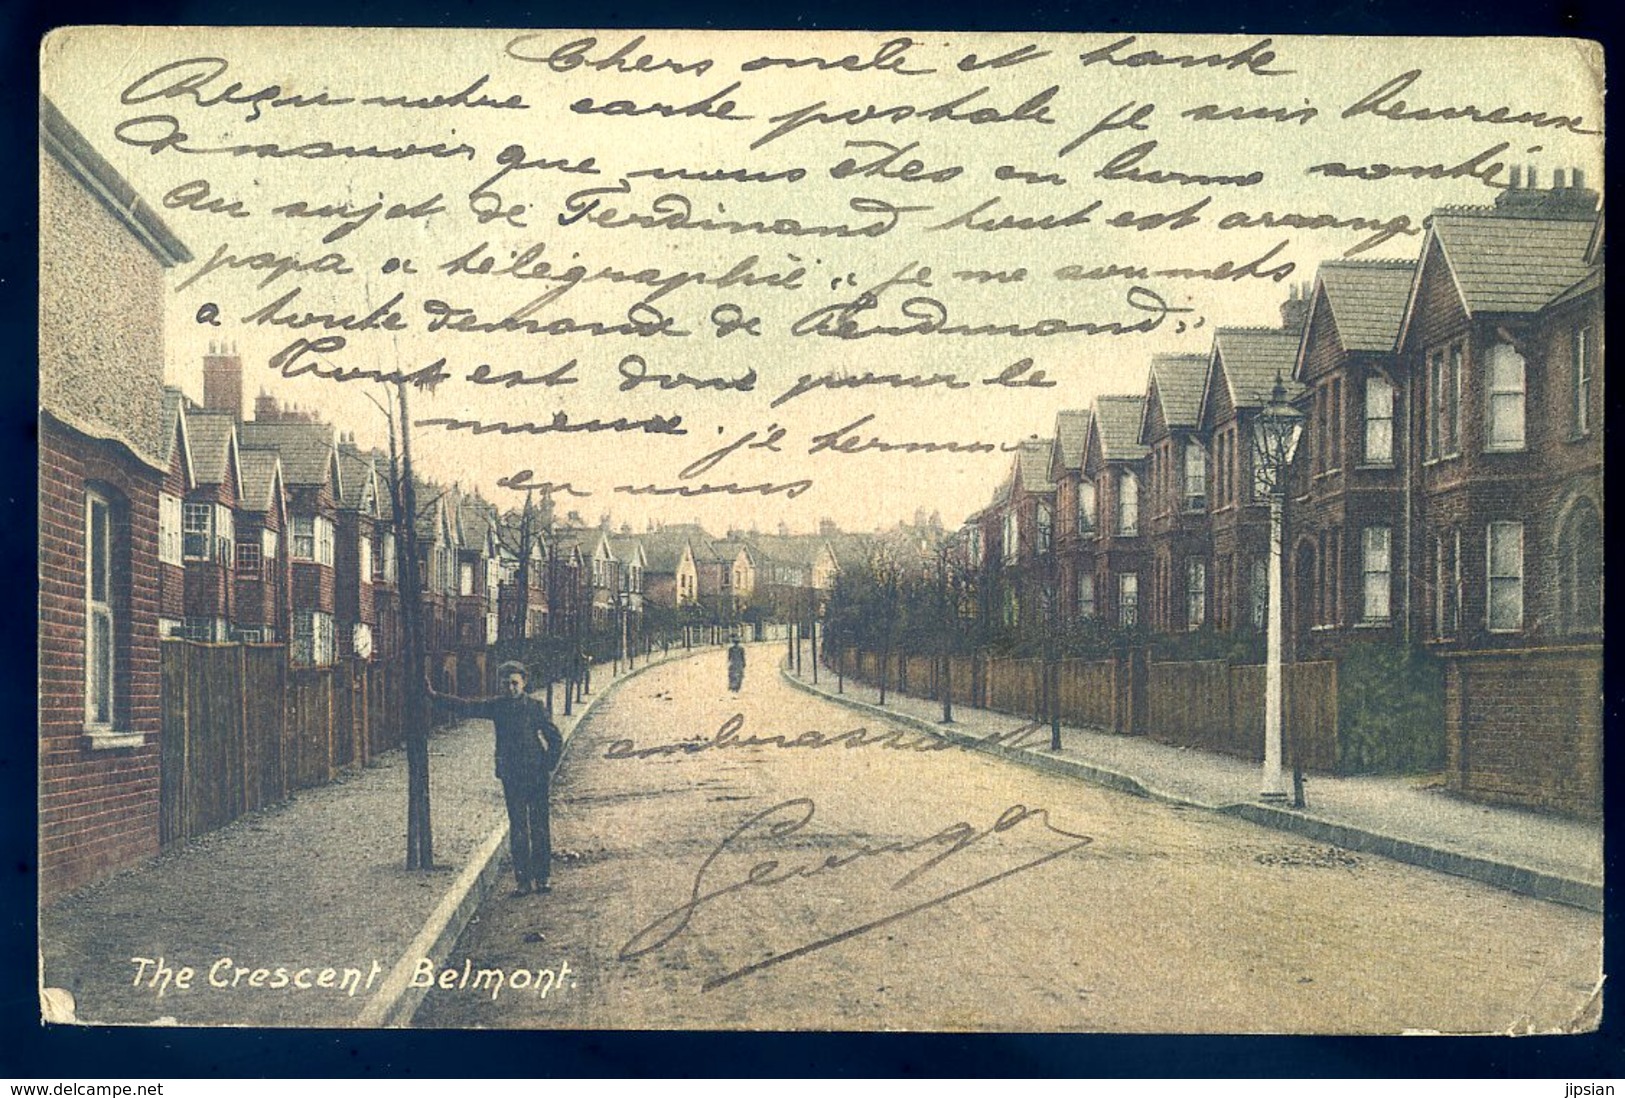 Chers oncle et tante
Reçu notre carte postale je suis heureux
de savoir que vous êtes en bonne santé
Au sujet de Ferdinand tout est arrangé
papa a télégraphié " je me soumets
a toute demande de Ferdinand"
Tout est donc pour le
mieux. je termine
en vous
embrassant
George
The Crescent, Belmont.
www.delcampe.net
jipsian